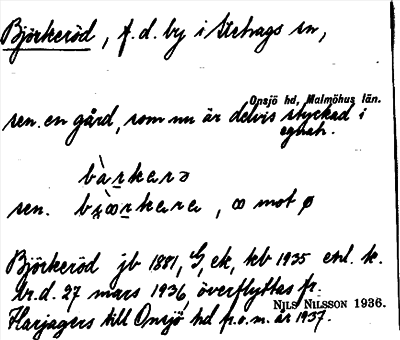 Björkeröd, f.d. by i Stehags sn,
Onsjö hd, Malmöhus län.
sen. en gård, som nu är delvis styckad i
egnah.
bàrkərə
sen. b œrkera, œ mot ø
Björkeröd jb 1881, G, ek, kb 1935 enl. k.
br.d. 27 mars 1936, överflyttas fr.
NILS NILSSON 1936.
Harjagers till Onsjö hd fr.o.m. år 1937.